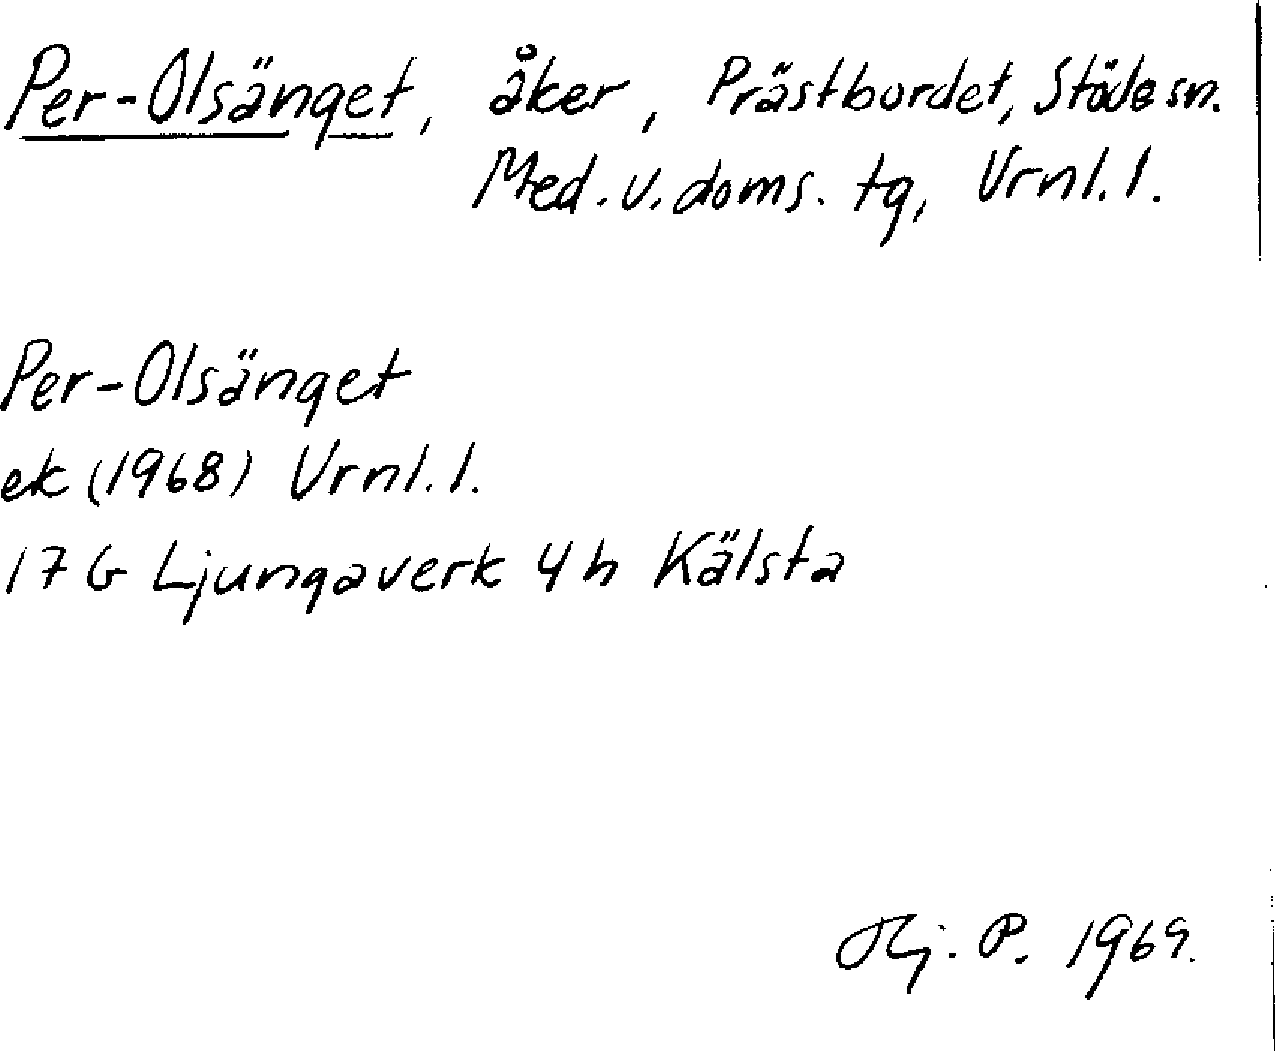 Per-Olsänget, åker, Prästbordet, Stöde sn.
Med. v. doms. tg, Vrnl. l.
Per-Olsänget
ek (1968) Vrnl. l.
17 G Ljungaverk 4 h Kälsta
Hj. P. 1969.